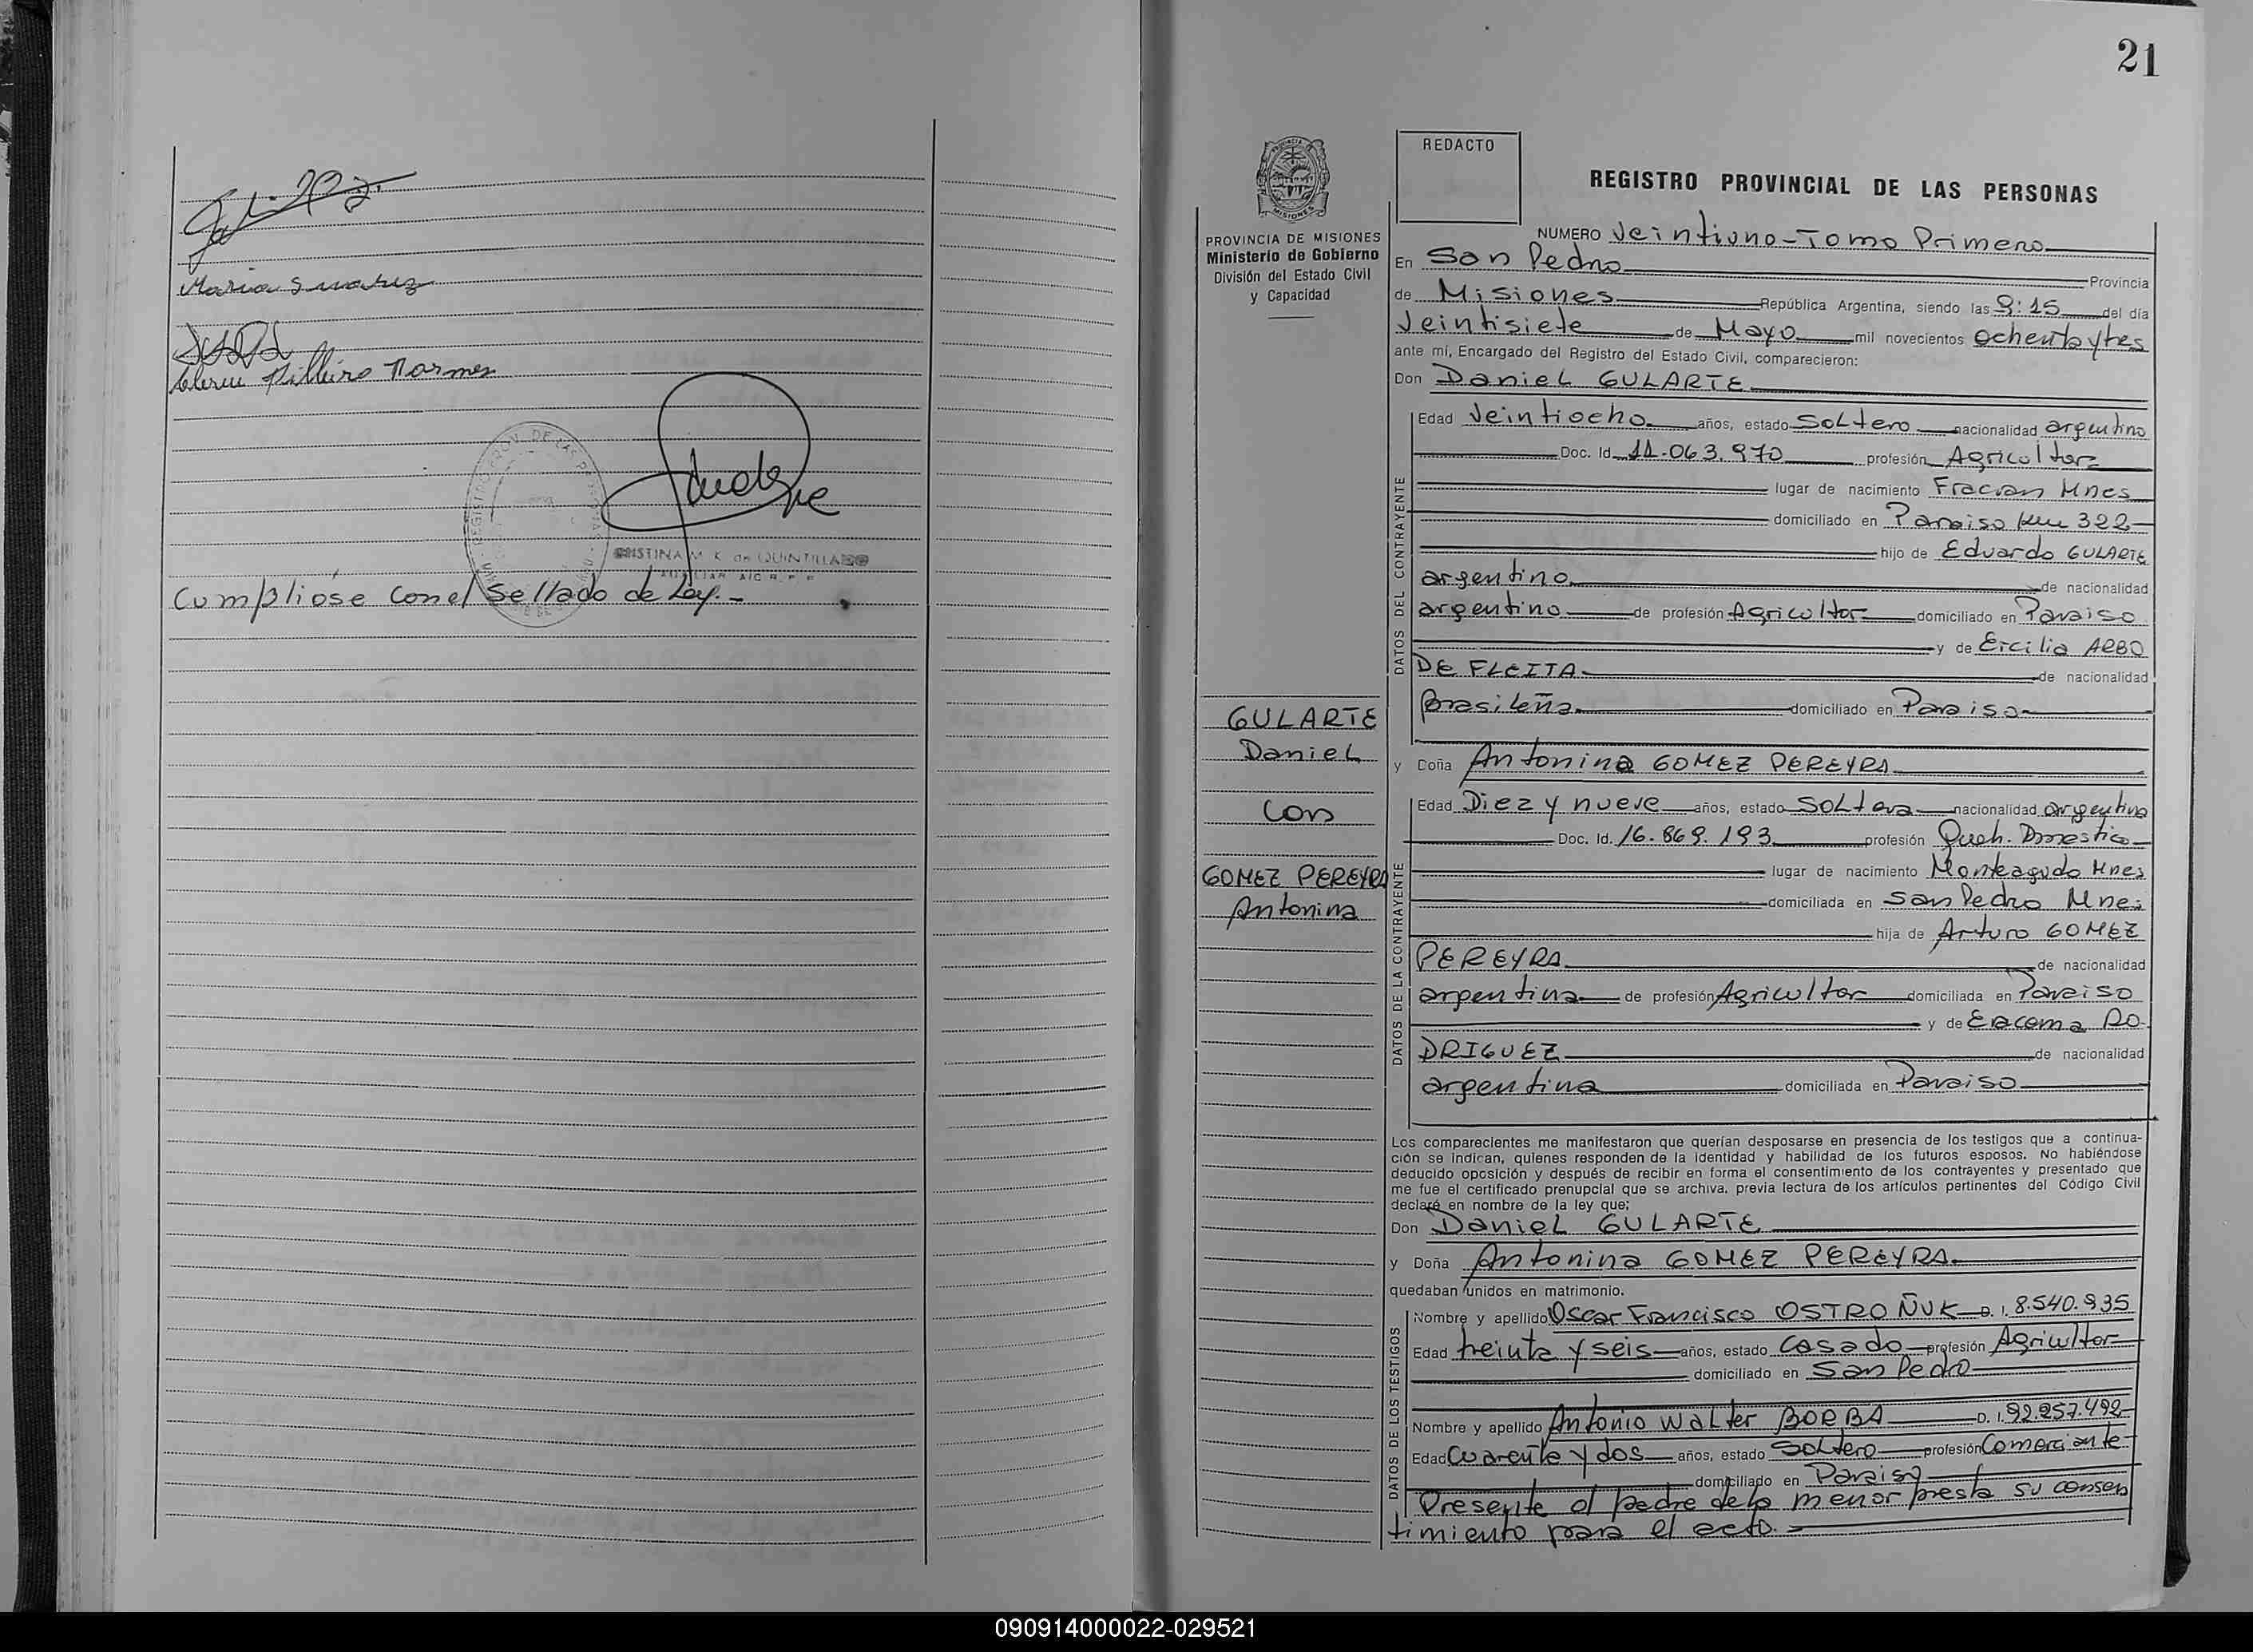 Maria Suarez
REGISTRO PROV. DE LAS PERSONAS
CRISTINA M. K. de QUINTILLA
AUXILIAR
Cumpliose con el Sellado de Ley.-
21
REDACTO
REGISTRO PROVINCIAL DE LAS PERSONAS
PROVINCIA DE MISIONES
Ministerio de Gobierno
División del Estado Civil
y Capacidad
GULARTE
Daniel
Con
GOMEZ PEREYRA
Antonina
NUMERO Veintiuno-Tomo Primero
En San Pedro Provincia
de Misiones República Argentina, siendo las 9:15 del día
Veintisiete de Mayo mil novecientos ochentaytres
ante mí, Encargado del Registro del Estado Civil, comparecieron:
Don Daniel GULARTE
DATOS DEL CONTRAYENTE
Edad Veintiocho años, estado Soltero nacionalidad argentino
Doc. Id. 11.063.970 profesión Agricultor
lugar de nacimiento Fracran Mnes
domiciliado en Paraiso km 322
hijo de Eduardo GULARTE
argentino de nacionalidad
argentino de profesión Agricultor domiciliado en Paraiso
y de Ercilia ARBO
DE FLEITA de nacionalidad
brasileña domiciliado en Paraiso
y Doña Antonina GOMEZ PEREYRA
DATOS DE LA CONTRAYENTE
Edad Diez y nueve años, estado Soltera nacionalidad argentina
Doc. Id. 16.869.193 profesión Queh. Domestico
lugar de nacimiento Monteagudo Mnes
domiciliada en San Pedro Mnes
hija de Arturo GOMEZ
PEREYRA de nacionalidad
argentina de profesión Agricultor domiciliada en Paraiso
y de Eracema RO-
DRIGUEZ de nacionalidad
argentina domiciliada en Paraiso
Los comparecientes me manifestaron que querían desposarse en presencia de los testigos que a continua-
ción se indican, quienes responden de la identidad y habilidad de los futuros esposos. No habiéndose
deducido oposición y después de recibir en forma el consentimiento de los contrayentes y presentado que
me fue el certificado prenupcial que se archiva, previa lectura de los artículos pertinentes del Código Civil
declaré en nombre de la ley que;
Don Daniel GULARTE
y Doña Antonina GOMEZ PEREYRA
quedaban unidos en matrimonio.
DATOS DE LOS TESTIGOS
Nombre y apellido Oscar Francisco OSTROÑUK D. I. 8.540.935
Edad treinta y seis años, estado Casado profesión Agricultor
domiciliado en San Pedro
Nombre y apellido Antonio Walter BORBA D. I. 92.257.492
Edad Cuarenta y dos años, estado Soltero profesión Comerciante
domiciliado en Paraiso
Presente el padre de la menor presta su consen
timiento para el acto.
090914000022-029521